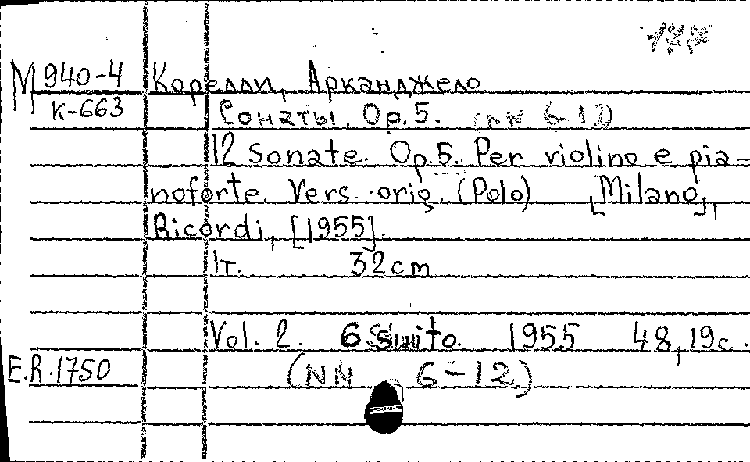 М 940-4 Корелли, Арканджело
К-663 Сонаты. Op. 5. (NN 6-12)
12 Sonate. Op. 5. Per violino e pia-
noforte. Vers. orig. (Polo) [Milano],
Ricordi, [1955].
1т. 32 cm
Vol. 2. 6 1955 48, 19 с.
E.R.1750 (NN 6-12)